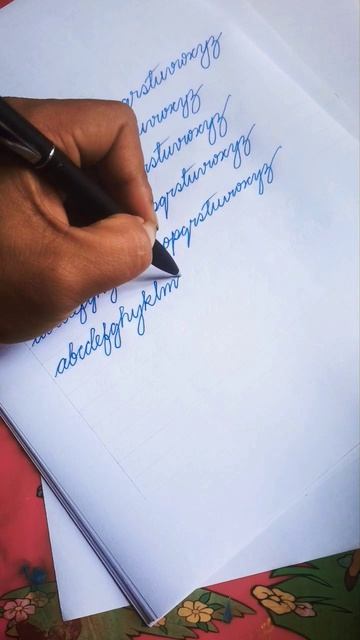 qrstuvwxyz
uvwxyz
rstuvwxyz
pqrstuvwxyz
opqrstuvwxyz
abcdefghijklm